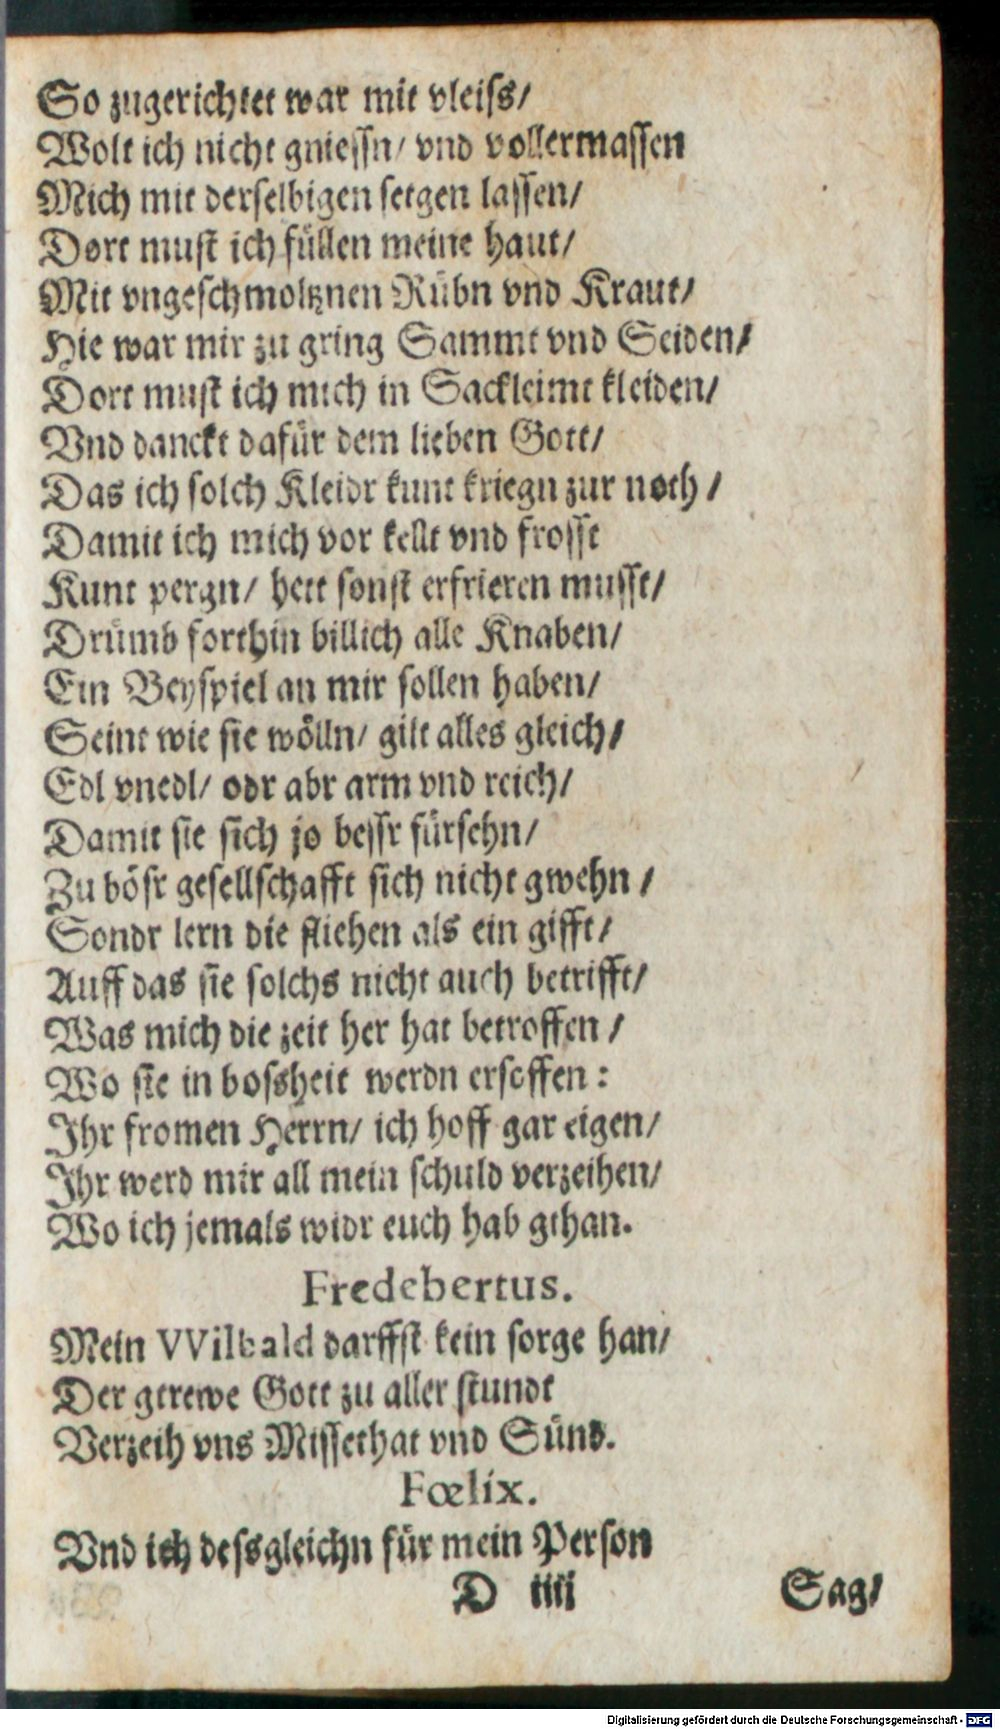 So zugerichtet war mit vleiss/
Wolt ich nicht gniessn/ vnd vollermassen
Mich mit derselbigen setgen lassen/
Dort must ich füllen meine haut/
Mit vngeschmoltznen Rübn vnd Kraut/
Hie war mir zu gring Sammt vnd Seiden/
Dort must ich mich in Sackleimt kleiden/
Vnd danckt dafür dem lieben Gott/
Das ich solch Kleidr kunt kriegn zur noth/
Damit ich mich vor kellt vnd frosst
Kunt pergn/ hett sonst erfrieren musst/
Drümb forthin billich alle Knaben/
Ein Beyspiel an mir sollen haben/
Seint wie sie wölln/ gilt alles gleich/
Edl vnedl/ odr abr arm vnd reich/
Damit sie sich jo bessr fürsehn/
Zu bösr gesellschafft sich nicht gwehn/
Sondr lern die fliehen als ein gifft/
Auff das sie solchs nicht auch betrifft/
Was mich die zeit her hat betroffen/
Wo sie in bossheit werdn ersoffen:
Ihr fromen Herrn/ ich hoff gar eigen/
Ihr werd mir all mein schuld verzeihen/
Wo ich jemals widr euch hab gthan.
Fredebertus.
Mein VVilbald darffst kein sorge han/
Der getrewe Gott zu aller stundt
Verzeih vns Missethat vnd Sünd.
Fœlix.
Vnd ich dessgleichn für mein Person
D iiii Sag/
Digitalisierung gefördert durch die Deutsche Forschungsgemeinschaft - DFG